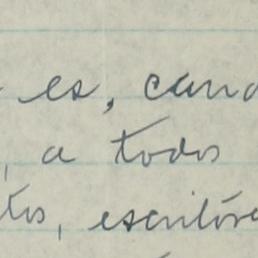 es, cand
, a todos
tos, escritóre